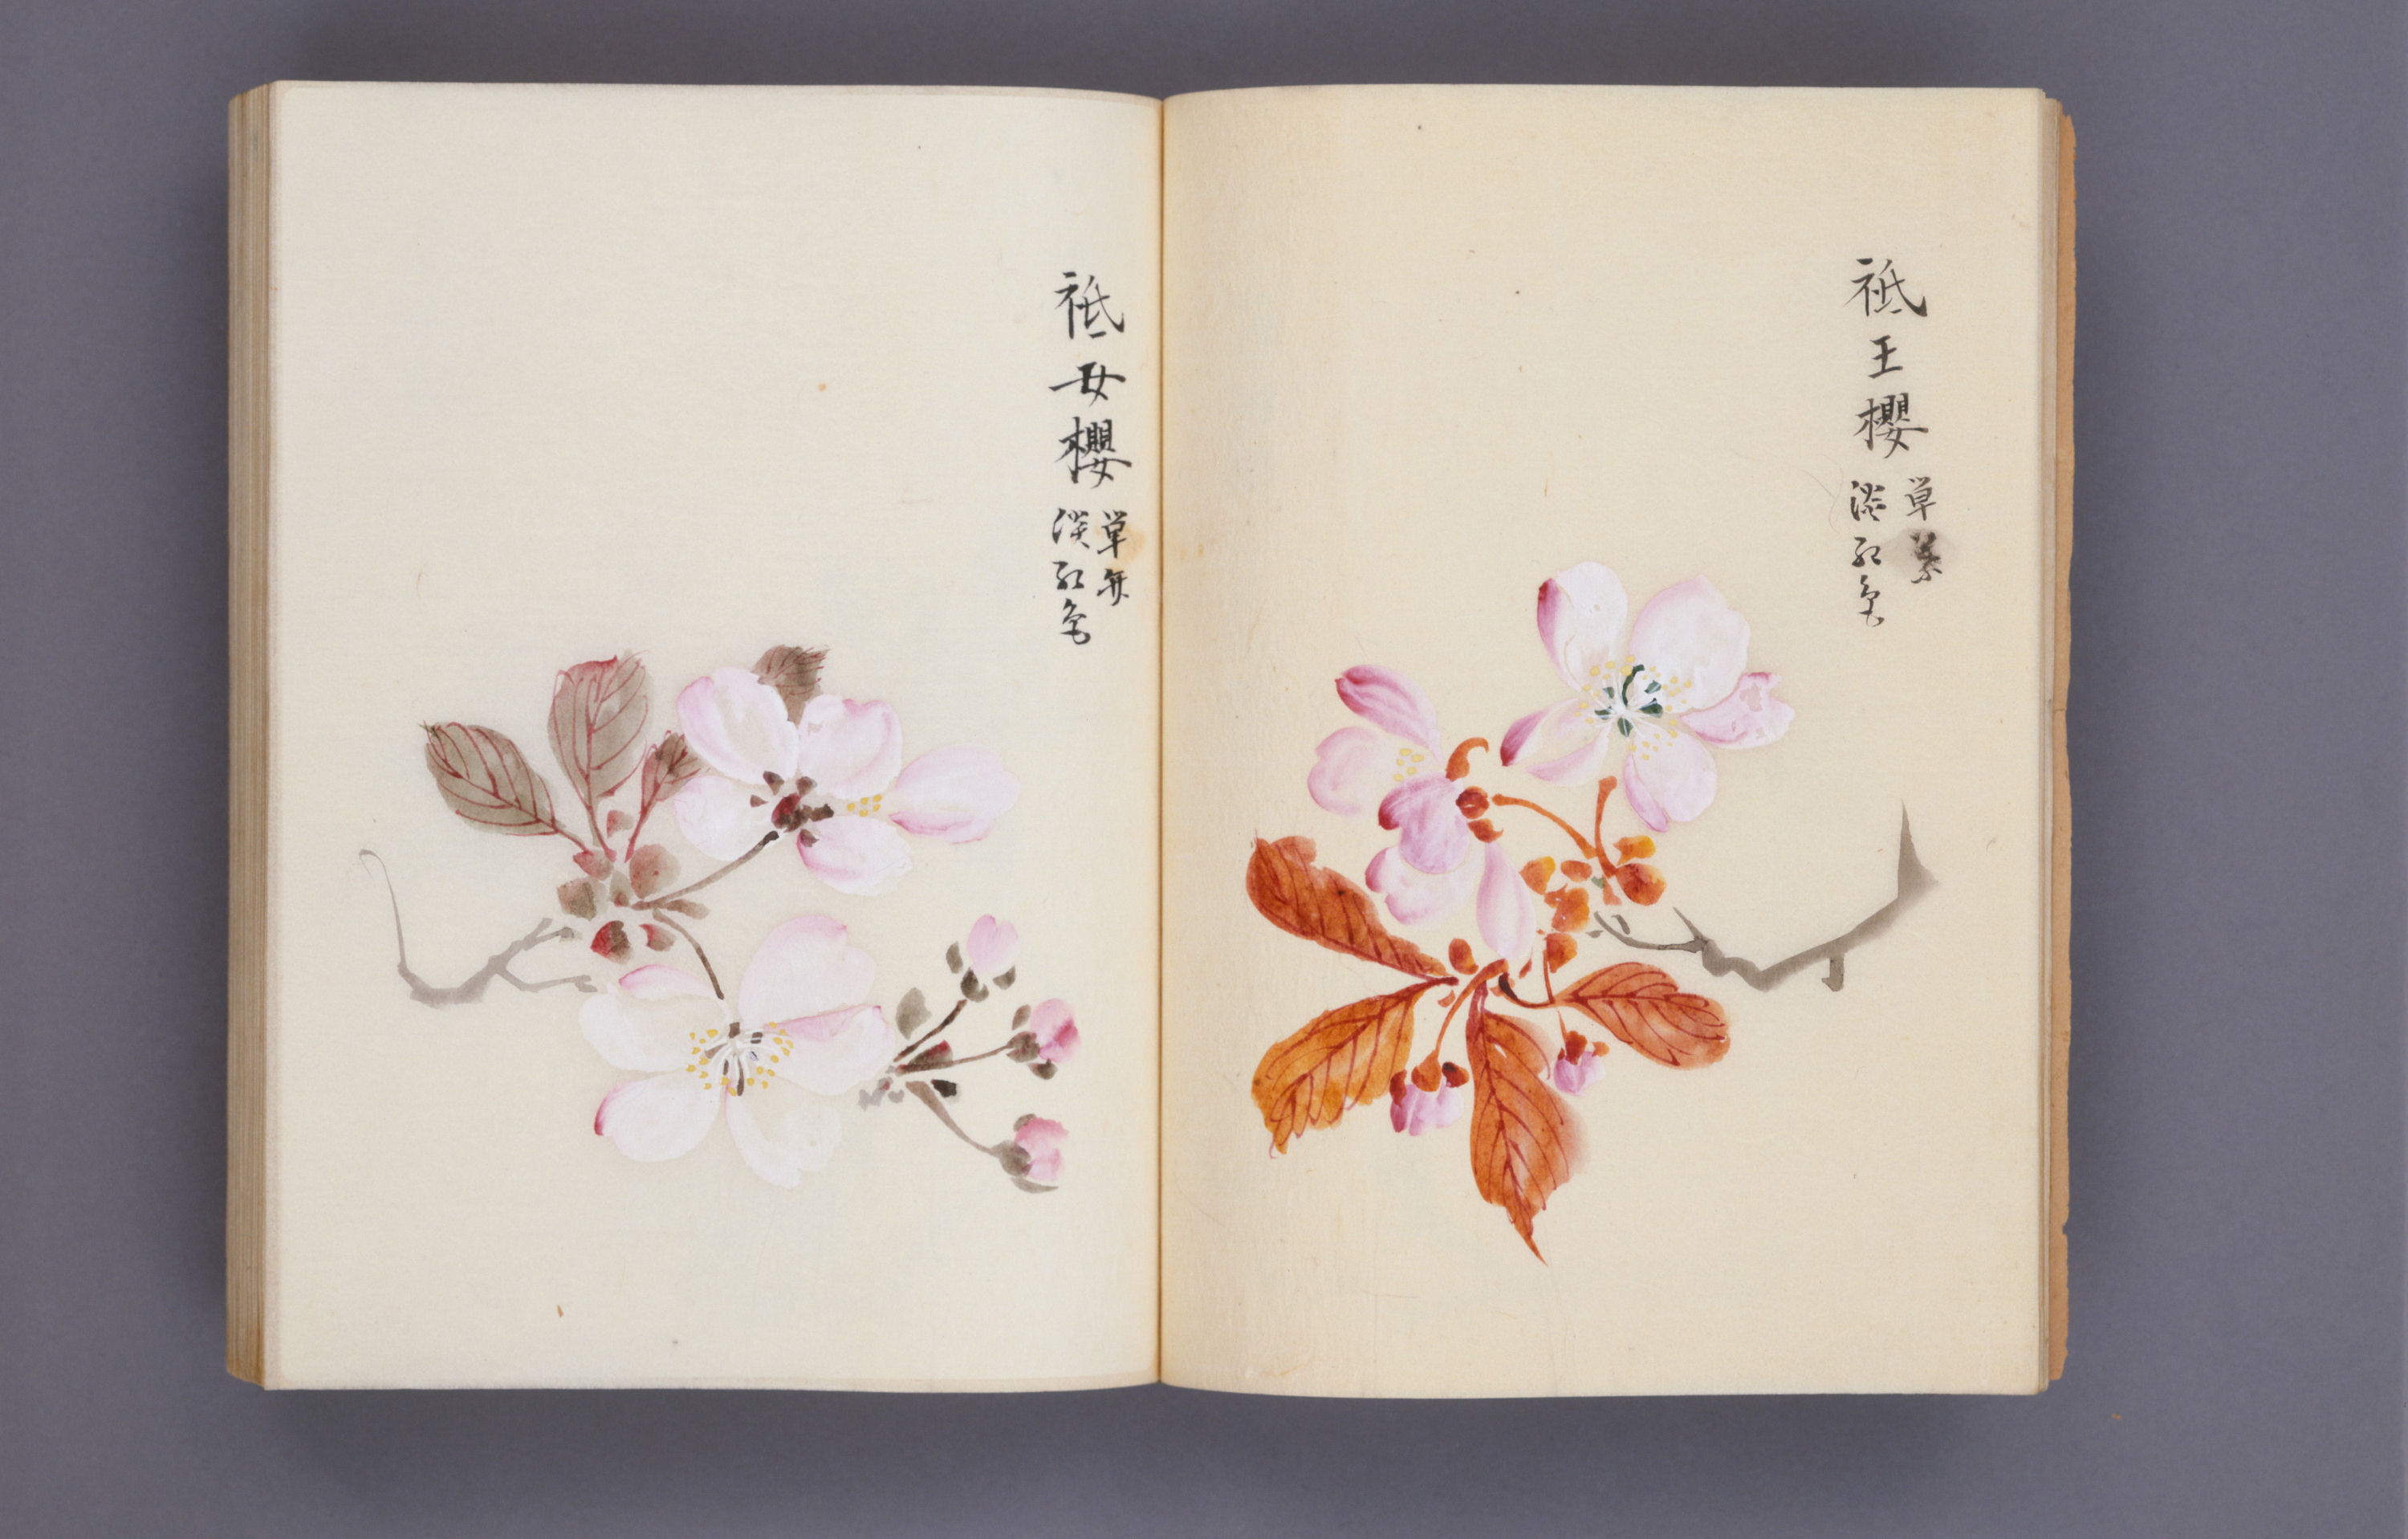 祗王櫻
単
淡紅色
祗女櫻
単弁
淡紅色